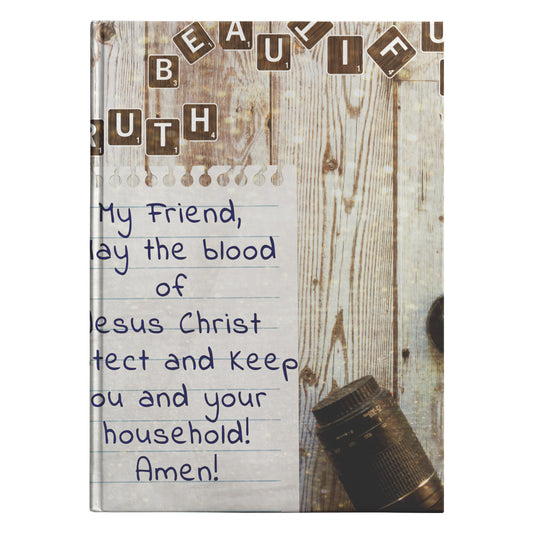 BEAUTIFU
RUTH
My Friend,
ay the blood
of
esus Christ
tect and Keep
ou and your
household!
Amen!